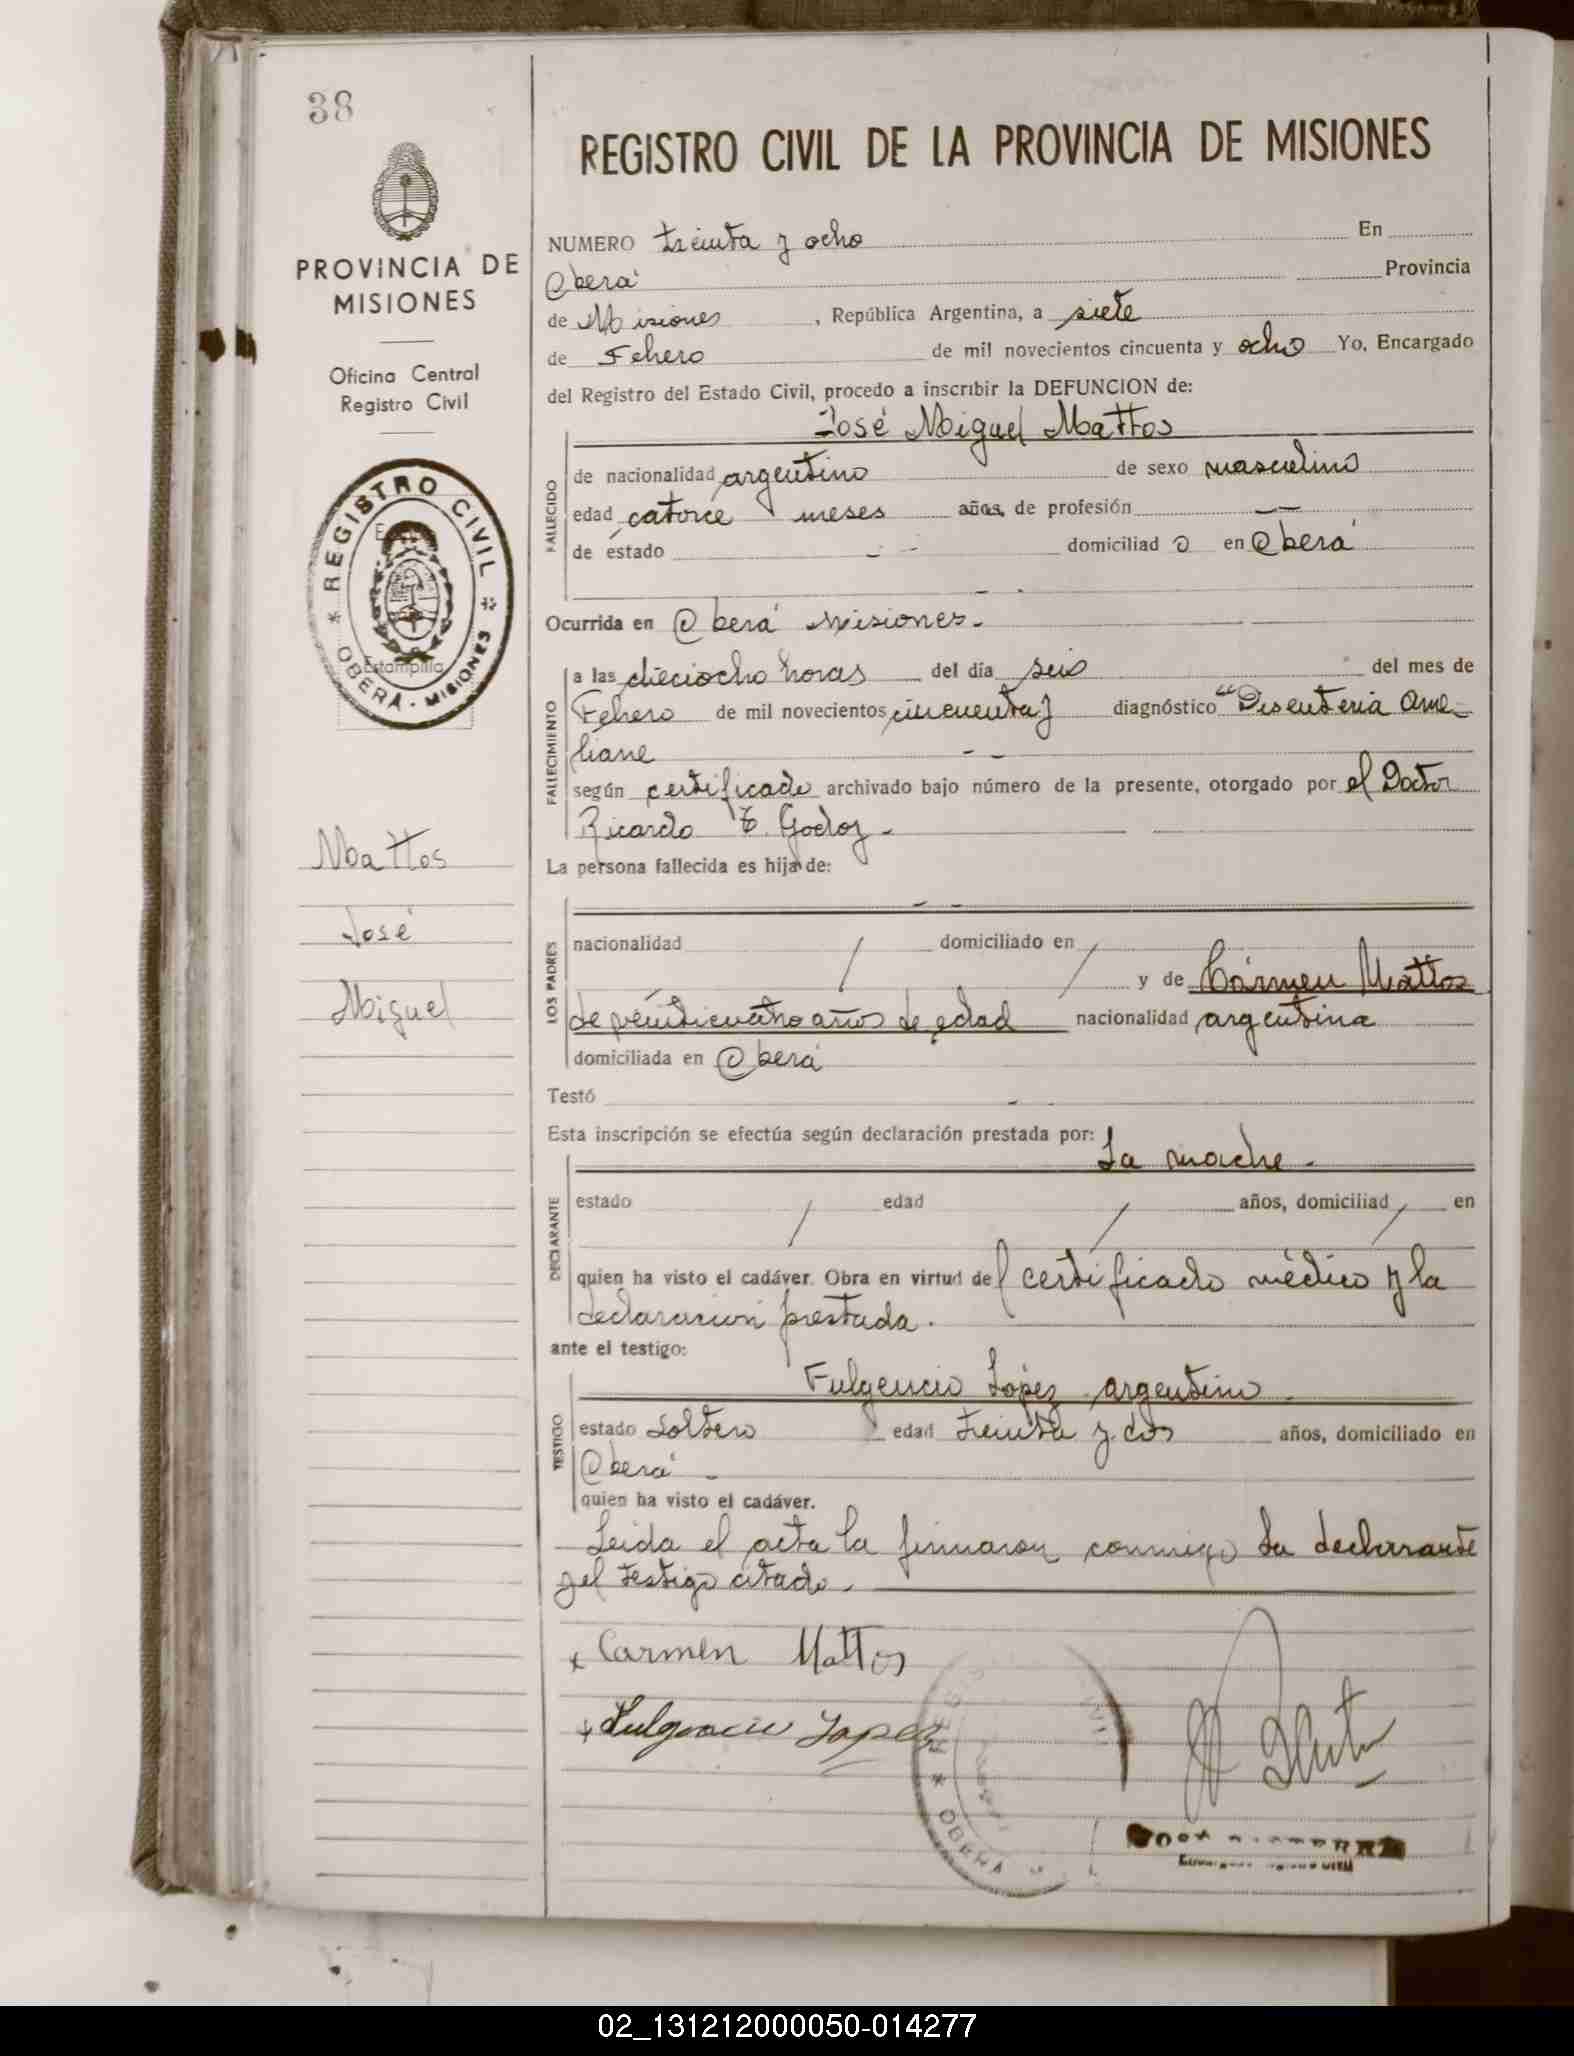 38
PROVINCIA DE
MISIONES
Oficina Central
Registro Civil
* REGISTRO CIVIL *
OBERÁ - MISIONES
Estampilla
Mattos
José
Miguel
REGISTRO CIVIL DE LA PROVINCIA DE MISIONES
NUMERO treinta y ocho En
Oberá Provincia
de Misiones, República Argentina, a siete
de Febrero de mil novecientos cincuenta y ocho Yo, Encargado
del Registro del Estado Civil, procedo a inscribir la DEFUNCION de:
José Miguel Mattos
FALLECIDO
de nacionalidad argentino de sexo masculino
edad catorce meses años, de profesión
de estado domiciliad o en Oberá
Ocurrida en Oberá Misiones.
FALLECIMIENTO
a las dieciocho horas del día seis del mes de
Febrero de mil novecientos cincuenta y diagnóstico "Disenteria Ame-
biane
según certificado archivado bajo número de la presente, otorgado por el Doctor
Ricardo T. Godoy.
La persona fallecida es hija de:
LOS PADRES
nacionalidad domiciliado en
y de Cármen Mattos
de veinticuatro años de edad nacionalidad argentina
domiciliada en Oberá
Testó
Esta inscripción se efectúa según declaración prestada por:
La madre.
DECLARANTE
estado edad años, domiciliad en
quien ha visto el cadáver. Obra en virtud del certificado médico y la
declaración prestada.
ante el testigo:
Fulgencio López argentino
TESTIGO
estado Soltero edad treinta y dos años, domiciliado en
Oberá
quien ha visto el cadáver.
Leida el acta la firmaron conmigo la declarante
y el testigo citado.
Carmen Mattos
Fulgencio Lopez
* OBERA
02_131212000050-014277